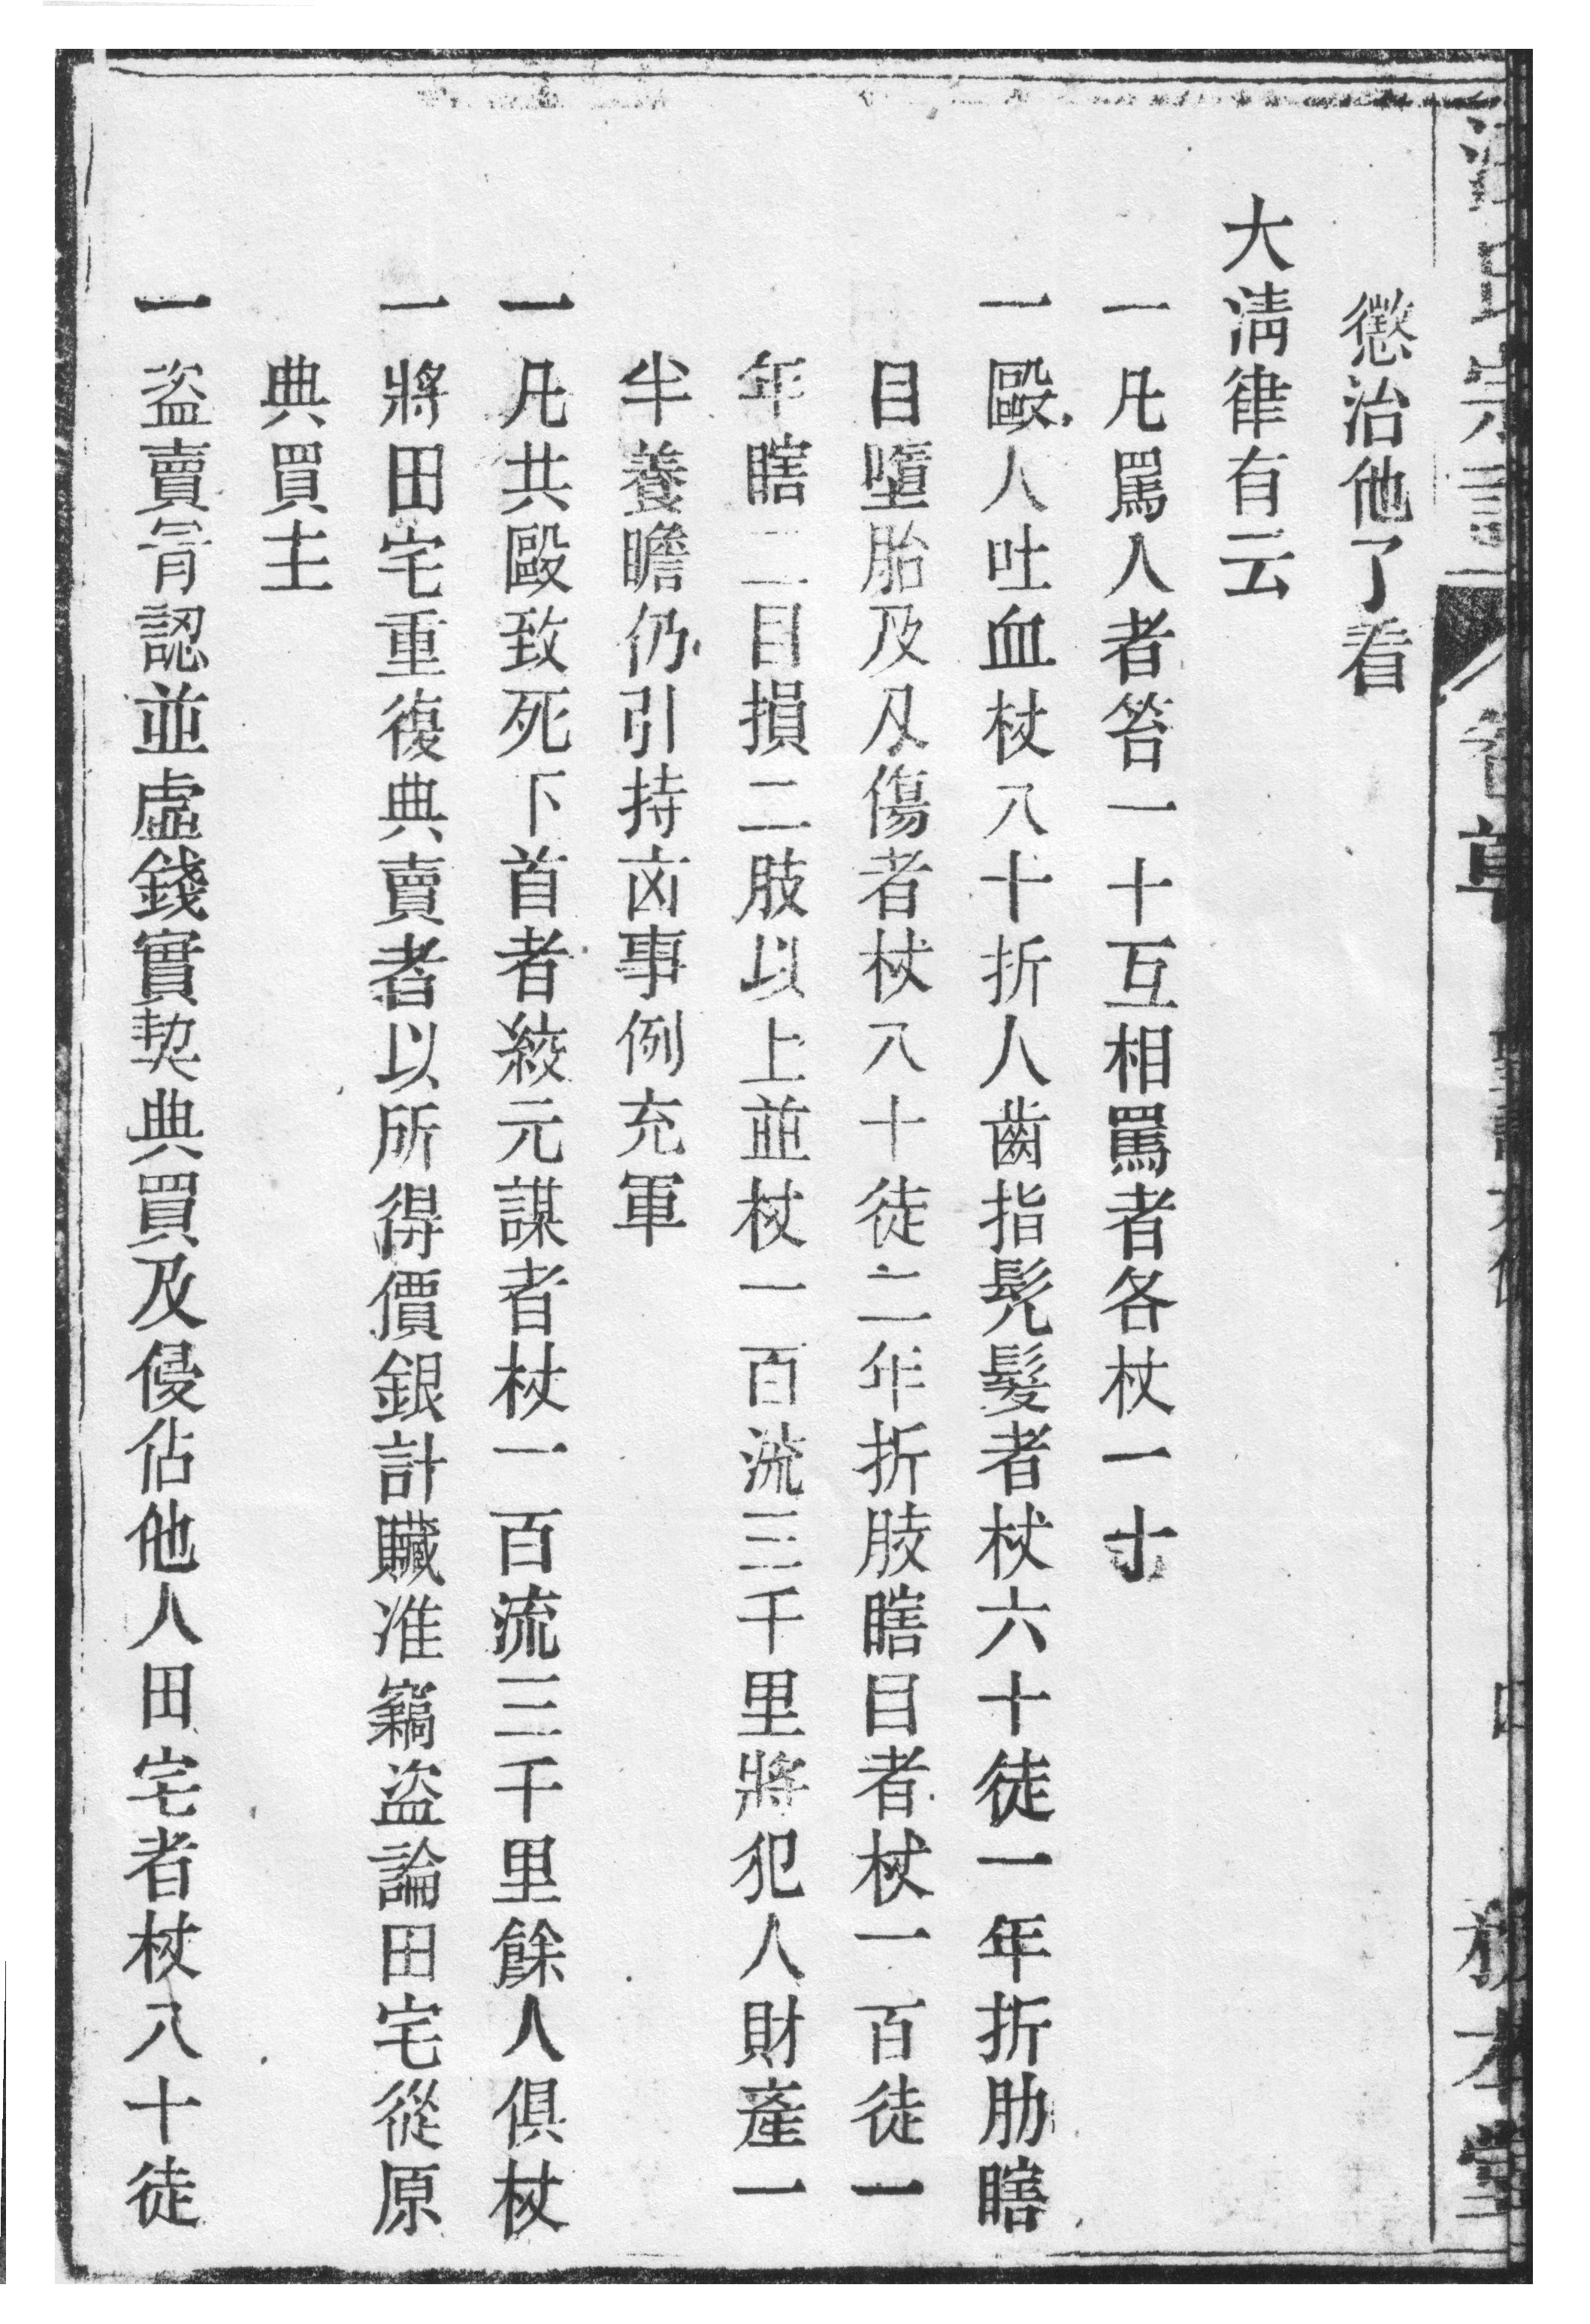 懲治他了看
大清律有云
一凡罵人者笞一十互相罵者各杖一十
一毆人吐血杖八十折人齒指髠髮者杖六十徒一年折肋瞎
目墮胎及刃傷者杖八十徒二年折肢瞎目者杖一百徒一
年瞎二目損二肢以上並杖一百流三千里將犯人財產一
半養贍仍引持凶事例充軍
一凡共毆致死下首者絞元謀者杖一百流三千里餘人俱杖
一將田宅重復典賣者以所得價銀計贓准竊盜論田宅從原
典買主
一盜賣冐認並虛錢實契典買及侵佔他人田宅者杖八十徒